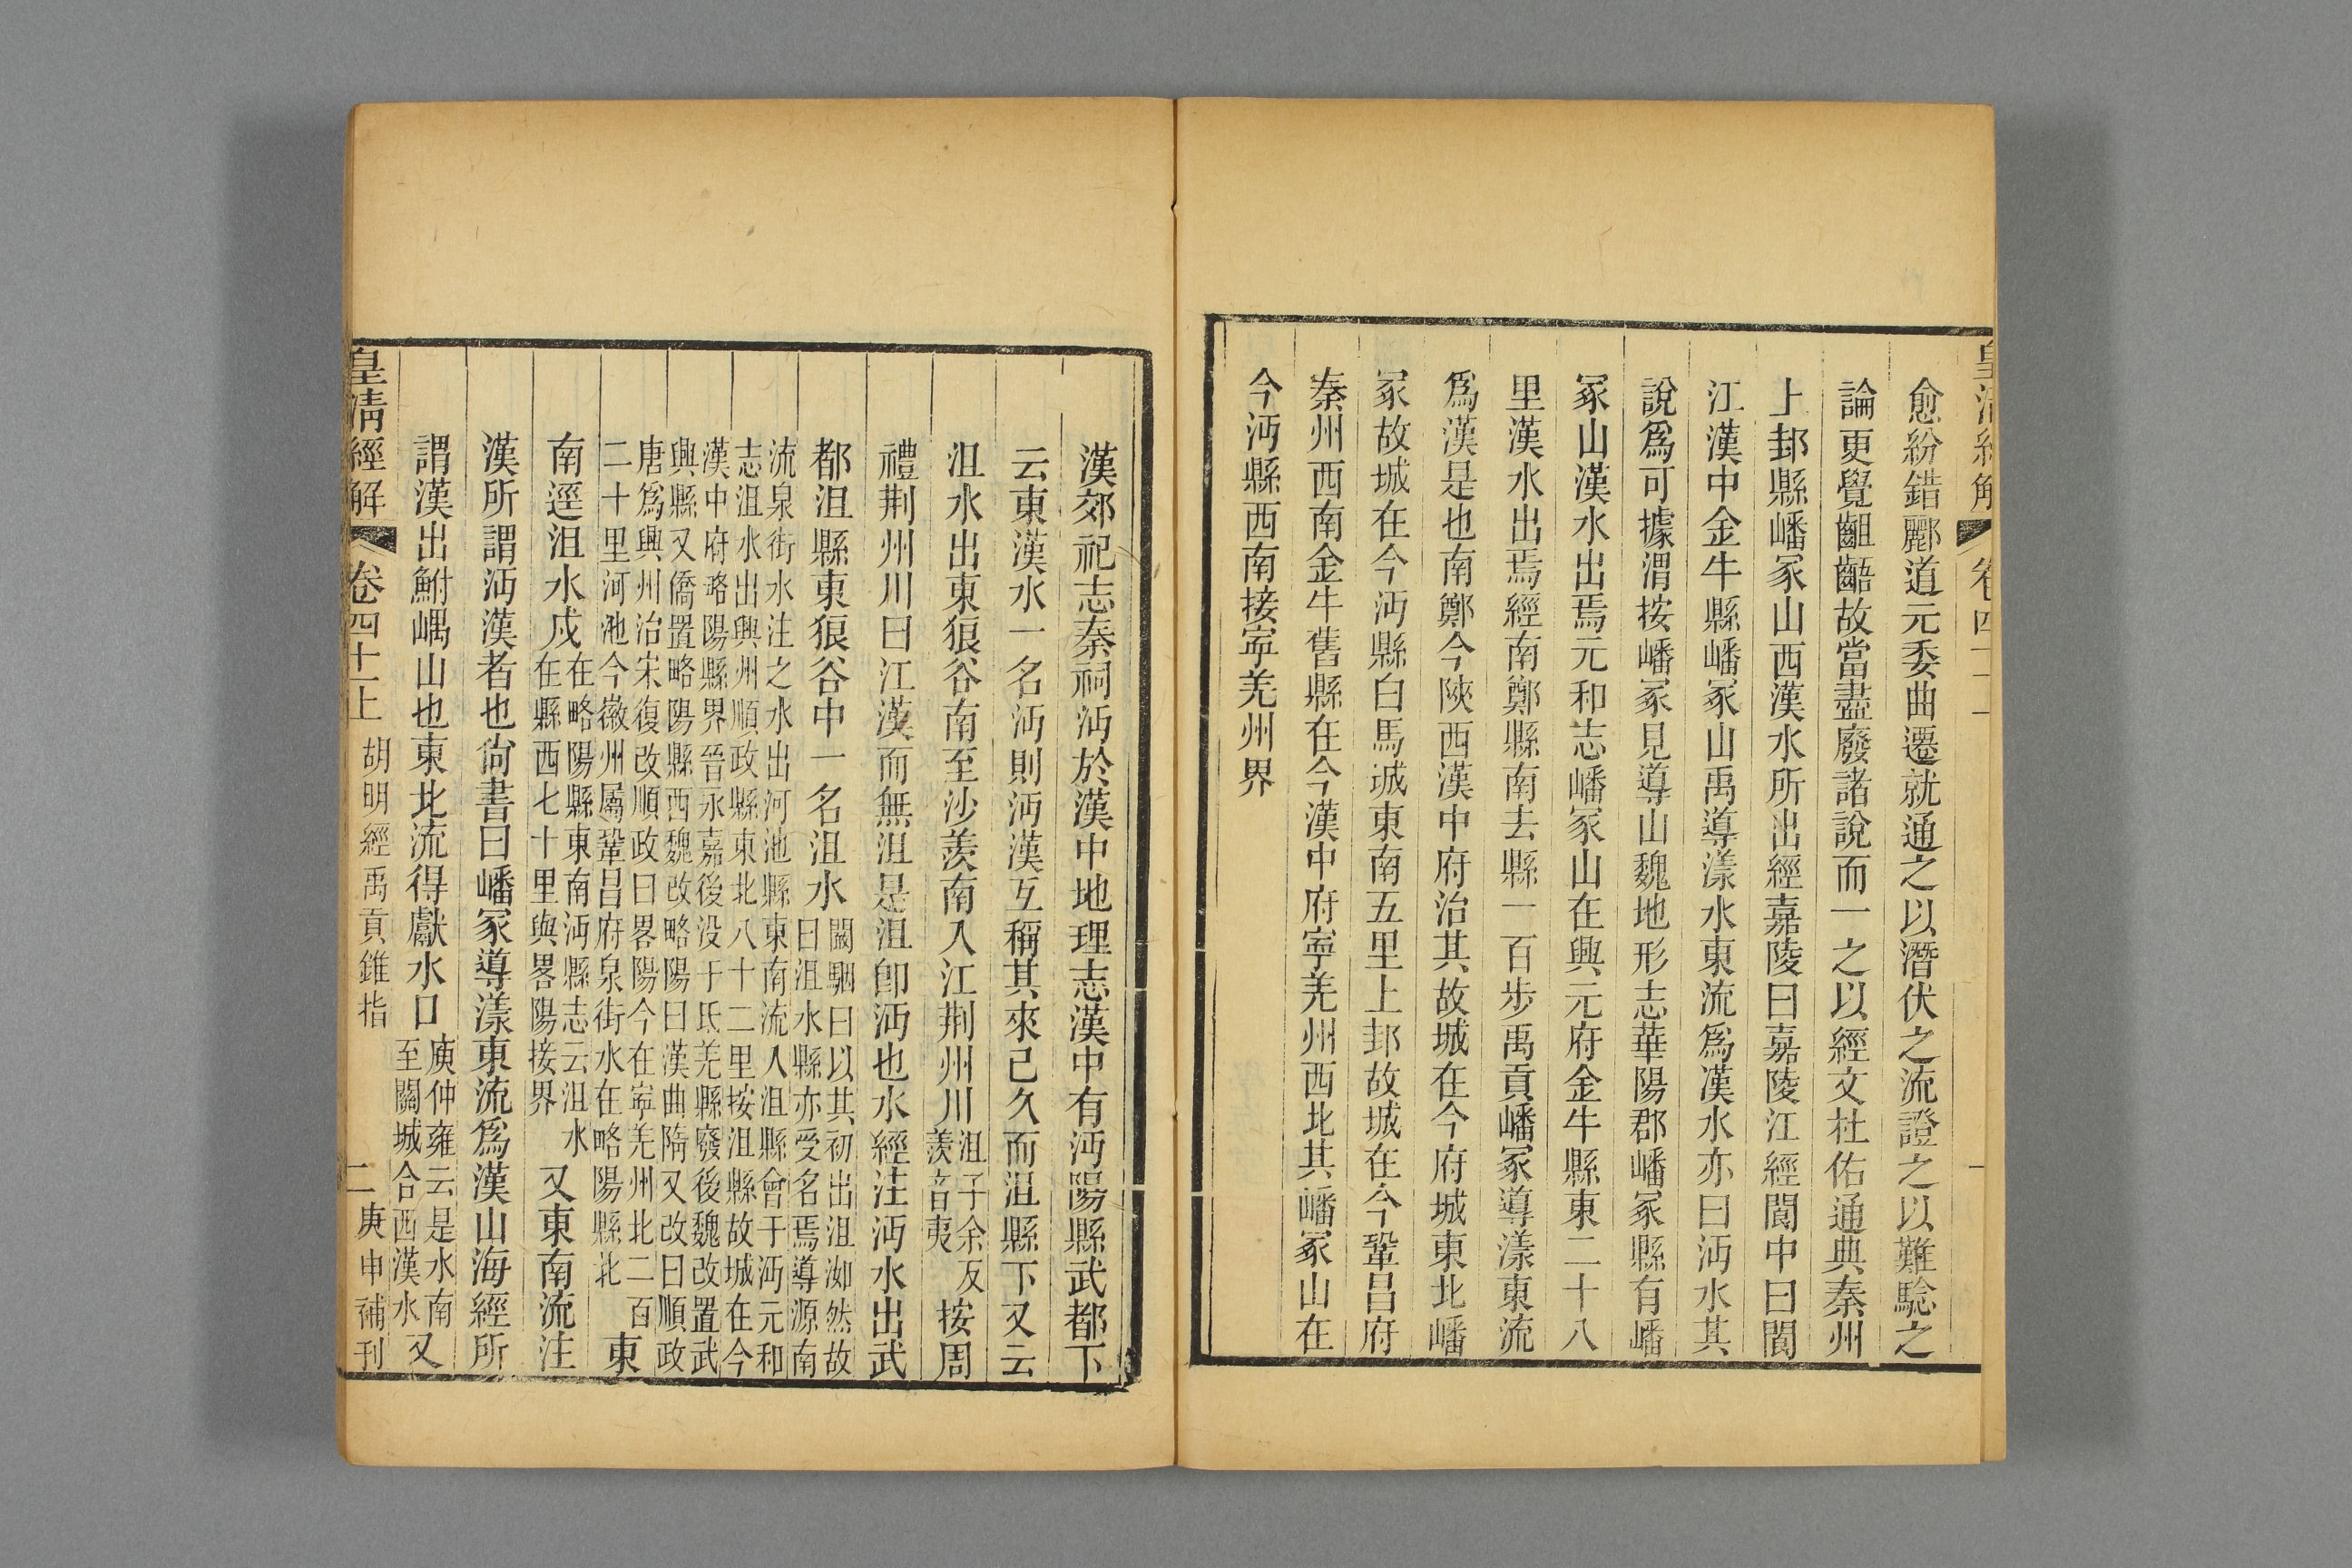 愈紛錯酈道元委曲遷就通之以潛伏之流證之以難驗之
論更覺齟齬故當盡廢諸說而一之以經文杜佑通典秦州
上邽縣嶓冢山西漢水所出經嘉陵曰嘉陵江經閬中曰閬
江漢中金牛縣嶓冢山禹導漾水東流為漢水亦曰沔水其
說為可據渭按嶓冢見導山魏地形志華陽郡嶓冢縣有嶓
冢山漢水出焉元和志嶓冢山在興元府金牛縣東二十八
里漢水出焉經南鄭縣南去縣一百步禹貢嶓冢導漾東流
為漢是也南鄭今陝西漢中府治其故城在今府城東北嶓
冢故城在今沔縣白馬城東南五里上邽故城在今鞏昌府
秦州西南金牛舊縣在今漢中府寧羌州西北其嶓冢山在
今沔縣西南接寧羌州界
漢郊祀志秦祠沔於漢中地理志漢中有沔陽縣武都下
云東漢水一名沔則沔漢互稱其來已久而沮縣下又云
沮水出東狼谷南至沙羨南入江荆州川沮子余反羨音夷按周
禮荆州川曰江漢而無沮是沮卽沔也水經注沔水出武
都沮縣東狼谷中一名沮水闞駰曰以其初出沮洳然故曰沮水縣亦受名焉導源南
流泉街水注之水出河池縣東南流入沮縣會于沔元和
志沮水出興州順政縣東北八十二里按沮縣故城在今
漢中府略陽縣界晉永嘉後没于氐羌縣廢後魏改置武
興縣又僑置略陽縣西魏改略陽曰漢曲隋又改曰順政
唐為興州治宋復改順政曰畧陽今在寧羌州北二百
二十里河池今徽州屬鞏昌府泉街水在略陽縣北東
南逕沮水戍在略陽縣東南沔縣志云沮水在縣西七十里與畧陽接界又東南流注
漢所謂沔漢者也尙書曰嶓冢導漾東流為漢山海經所
謂漢出鮒嵎山也東北流得獻水口庾仲雍云是水南至關城合西漢水又
皇清經解 卷四十二上 胡明經禹貢錐指 二 庚申補刊